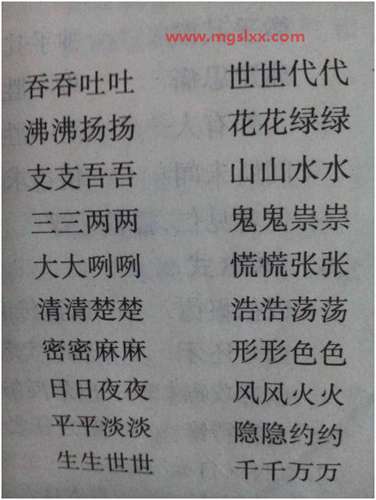 www.mgslxx.com
吞吞吐吐 世世代代
沸沸扬扬 花花绿绿
支支吾吾 山山水水
三三两两 鬼鬼祟祟
大大咧咧 慌慌张张
清清楚楚 浩浩荡荡
密密麻麻 形形色色
日日夜夜 风风火火
平平淡淡 隐隐约约
生生世世 千千万万